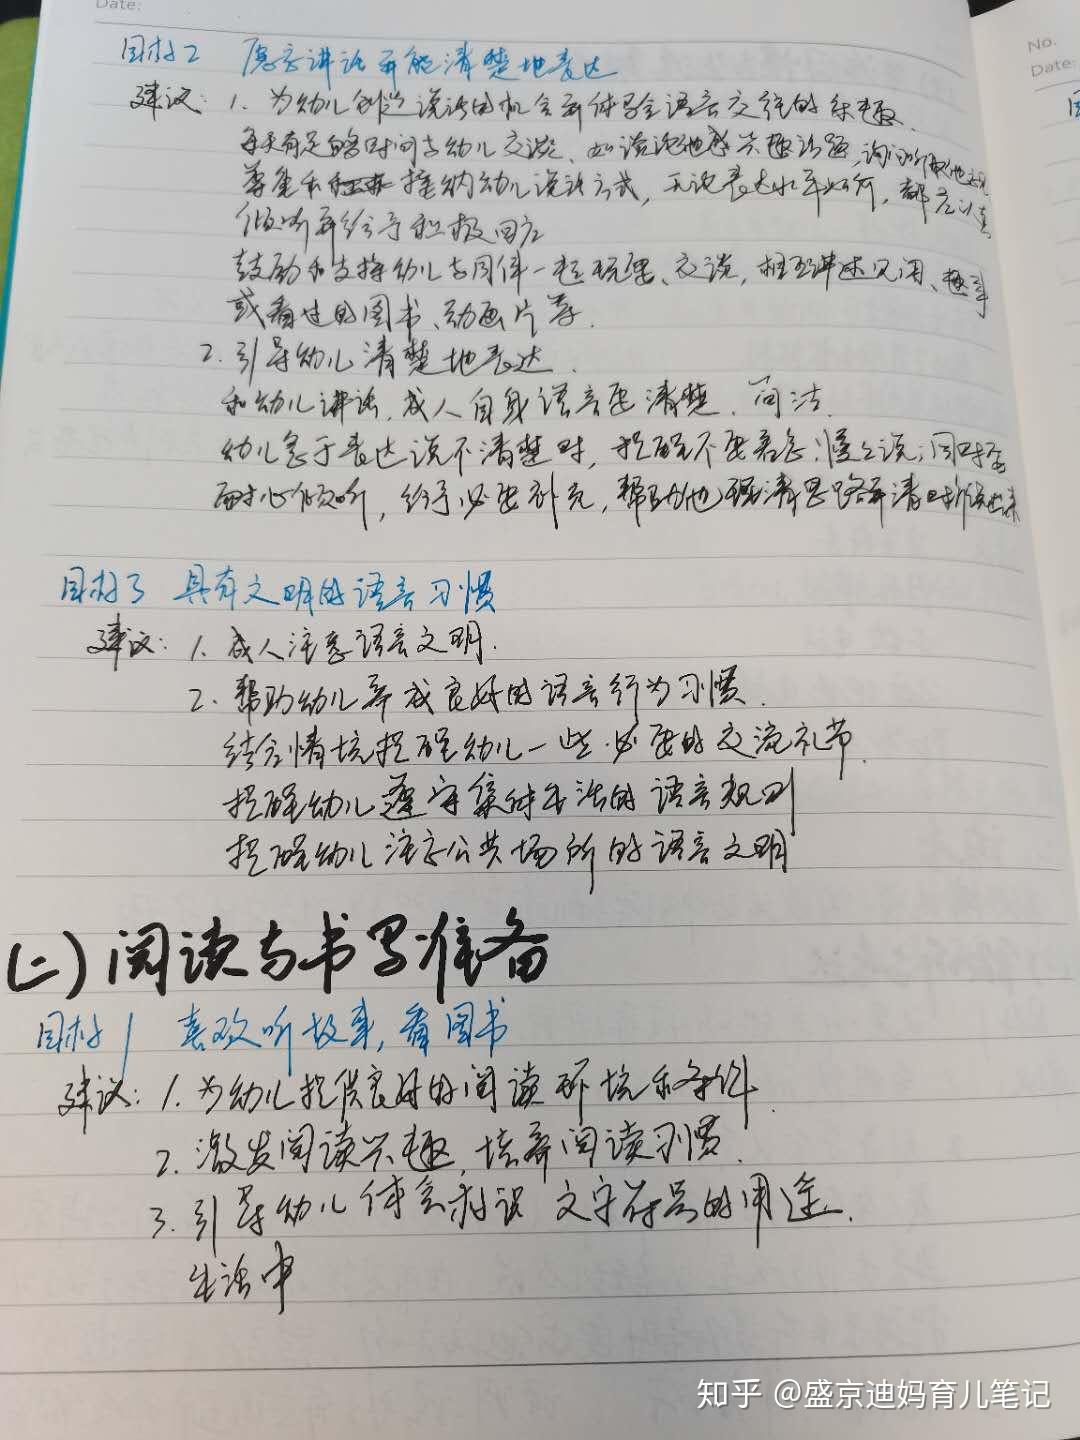 Date:
No.
Date:
目标2 愿意讲话并能清楚地表达
建议: 1. 为幼儿创造说话的机会并体验语言交往的乐趣.
每天有足够时间与幼儿交谈、如谈论他感兴趣话题,询问听取他意见
尊重和接纳幼儿说话方式,无论表达水平如何,都应认真
倾听并给予积极回应
鼓励和支持幼儿与同伴一起玩耍、交谈,相互讲述见闻、趣事
或看过的图书、动画片等.
2. 引导幼儿清楚地表达.
和幼儿讲话,成人自身语言要清楚、简洁.
幼儿急于表达说不清楚时,提醒不要着急,慢慢说;同时要
耐心倾听,给予必要补充,帮助他理清思路并清晰说出来
目标3 具有文明的语言习惯
建议: 1. 成人注意语言文明.
2. 帮助幼儿养成良好的语言行为习惯.
结合情境提醒幼儿一些必要的交流礼节.
提醒幼儿遵守集体生活的语言规则
提醒幼儿注意公共场所的语言文明
(二)阅读与书写准备
目标1 喜欢听故事,看图书
建议: 1. 为幼儿提供良好的阅读环境和条件.
2. 激发阅读兴趣,培养阅读习惯.
3. 引导幼儿体会标识 文字符号的用途.
生活中
知乎 @盛京迪妈育儿笔记